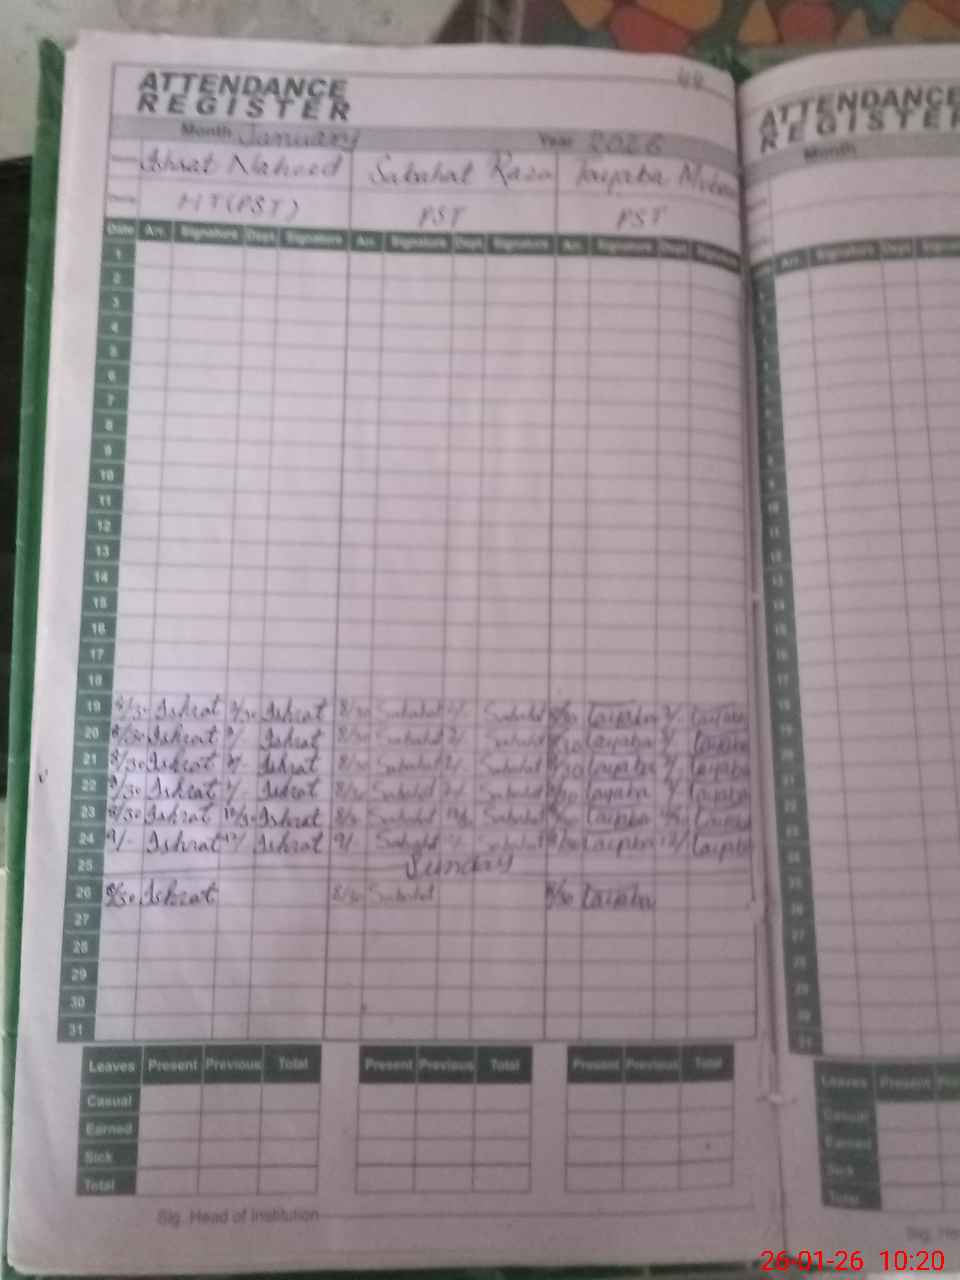 44
ATTENDANCE
REGISTER
ATTENDANCE
REGISTER
Month January Year 2026
Month
Ishrat Naheed Sabahat Raza Tayaba
HT(PST) PST PST
Date Arr. Signature Dept. Signature Arr. Signature Dept. Signature Arr. Signature Dept. Signature
Arr. Signature Dept.
1
2
3
4
5
6
7
8
9
10
11
12
13
14
15
16
17
18
19 8/30 Ishrat 2/30 Ishrat 8/30 Sabahat 2/- Sabahat 8/30 Tayaba 2/- Tayaba
20 8/30 Ishrat 2/- Ishrat 8/30 Sabahat 2/- Sabahat 8/30 Tayaba 2/- Tayaba
21 8/30 Ishrat 2/- Ishrat 8/30 Sabahat 2/- Sabahat 8/30 Tayaba 2/- Tayaba
22 8/30 Ishrat 2/- Ishrat 8/30 Sabahat 2/- Sabahat 8/30 Tayaba 2/- Tayaba
23 8/30 Ishrat 12/30 Ishrat 8/30 Sabahat Sabahat 8/30 Tayaba Tayaba
24 9/- Ishrat 12/- Ishrat 9/- Sabahat Sabahat Tayaba 12/- Tayaba
25 Sunday
26 8/30 Ishrat 8/30 Sabahat 8/30 Tayaba
27
28
29
30
31
Leaves Present Previous Total Present Previous Total Present Previous Total
Casual
Earned
Sick
Total
Sig. Head of Institution
Leaves Present
Casual
Earned
Sick
Total
26-01-26 10:20